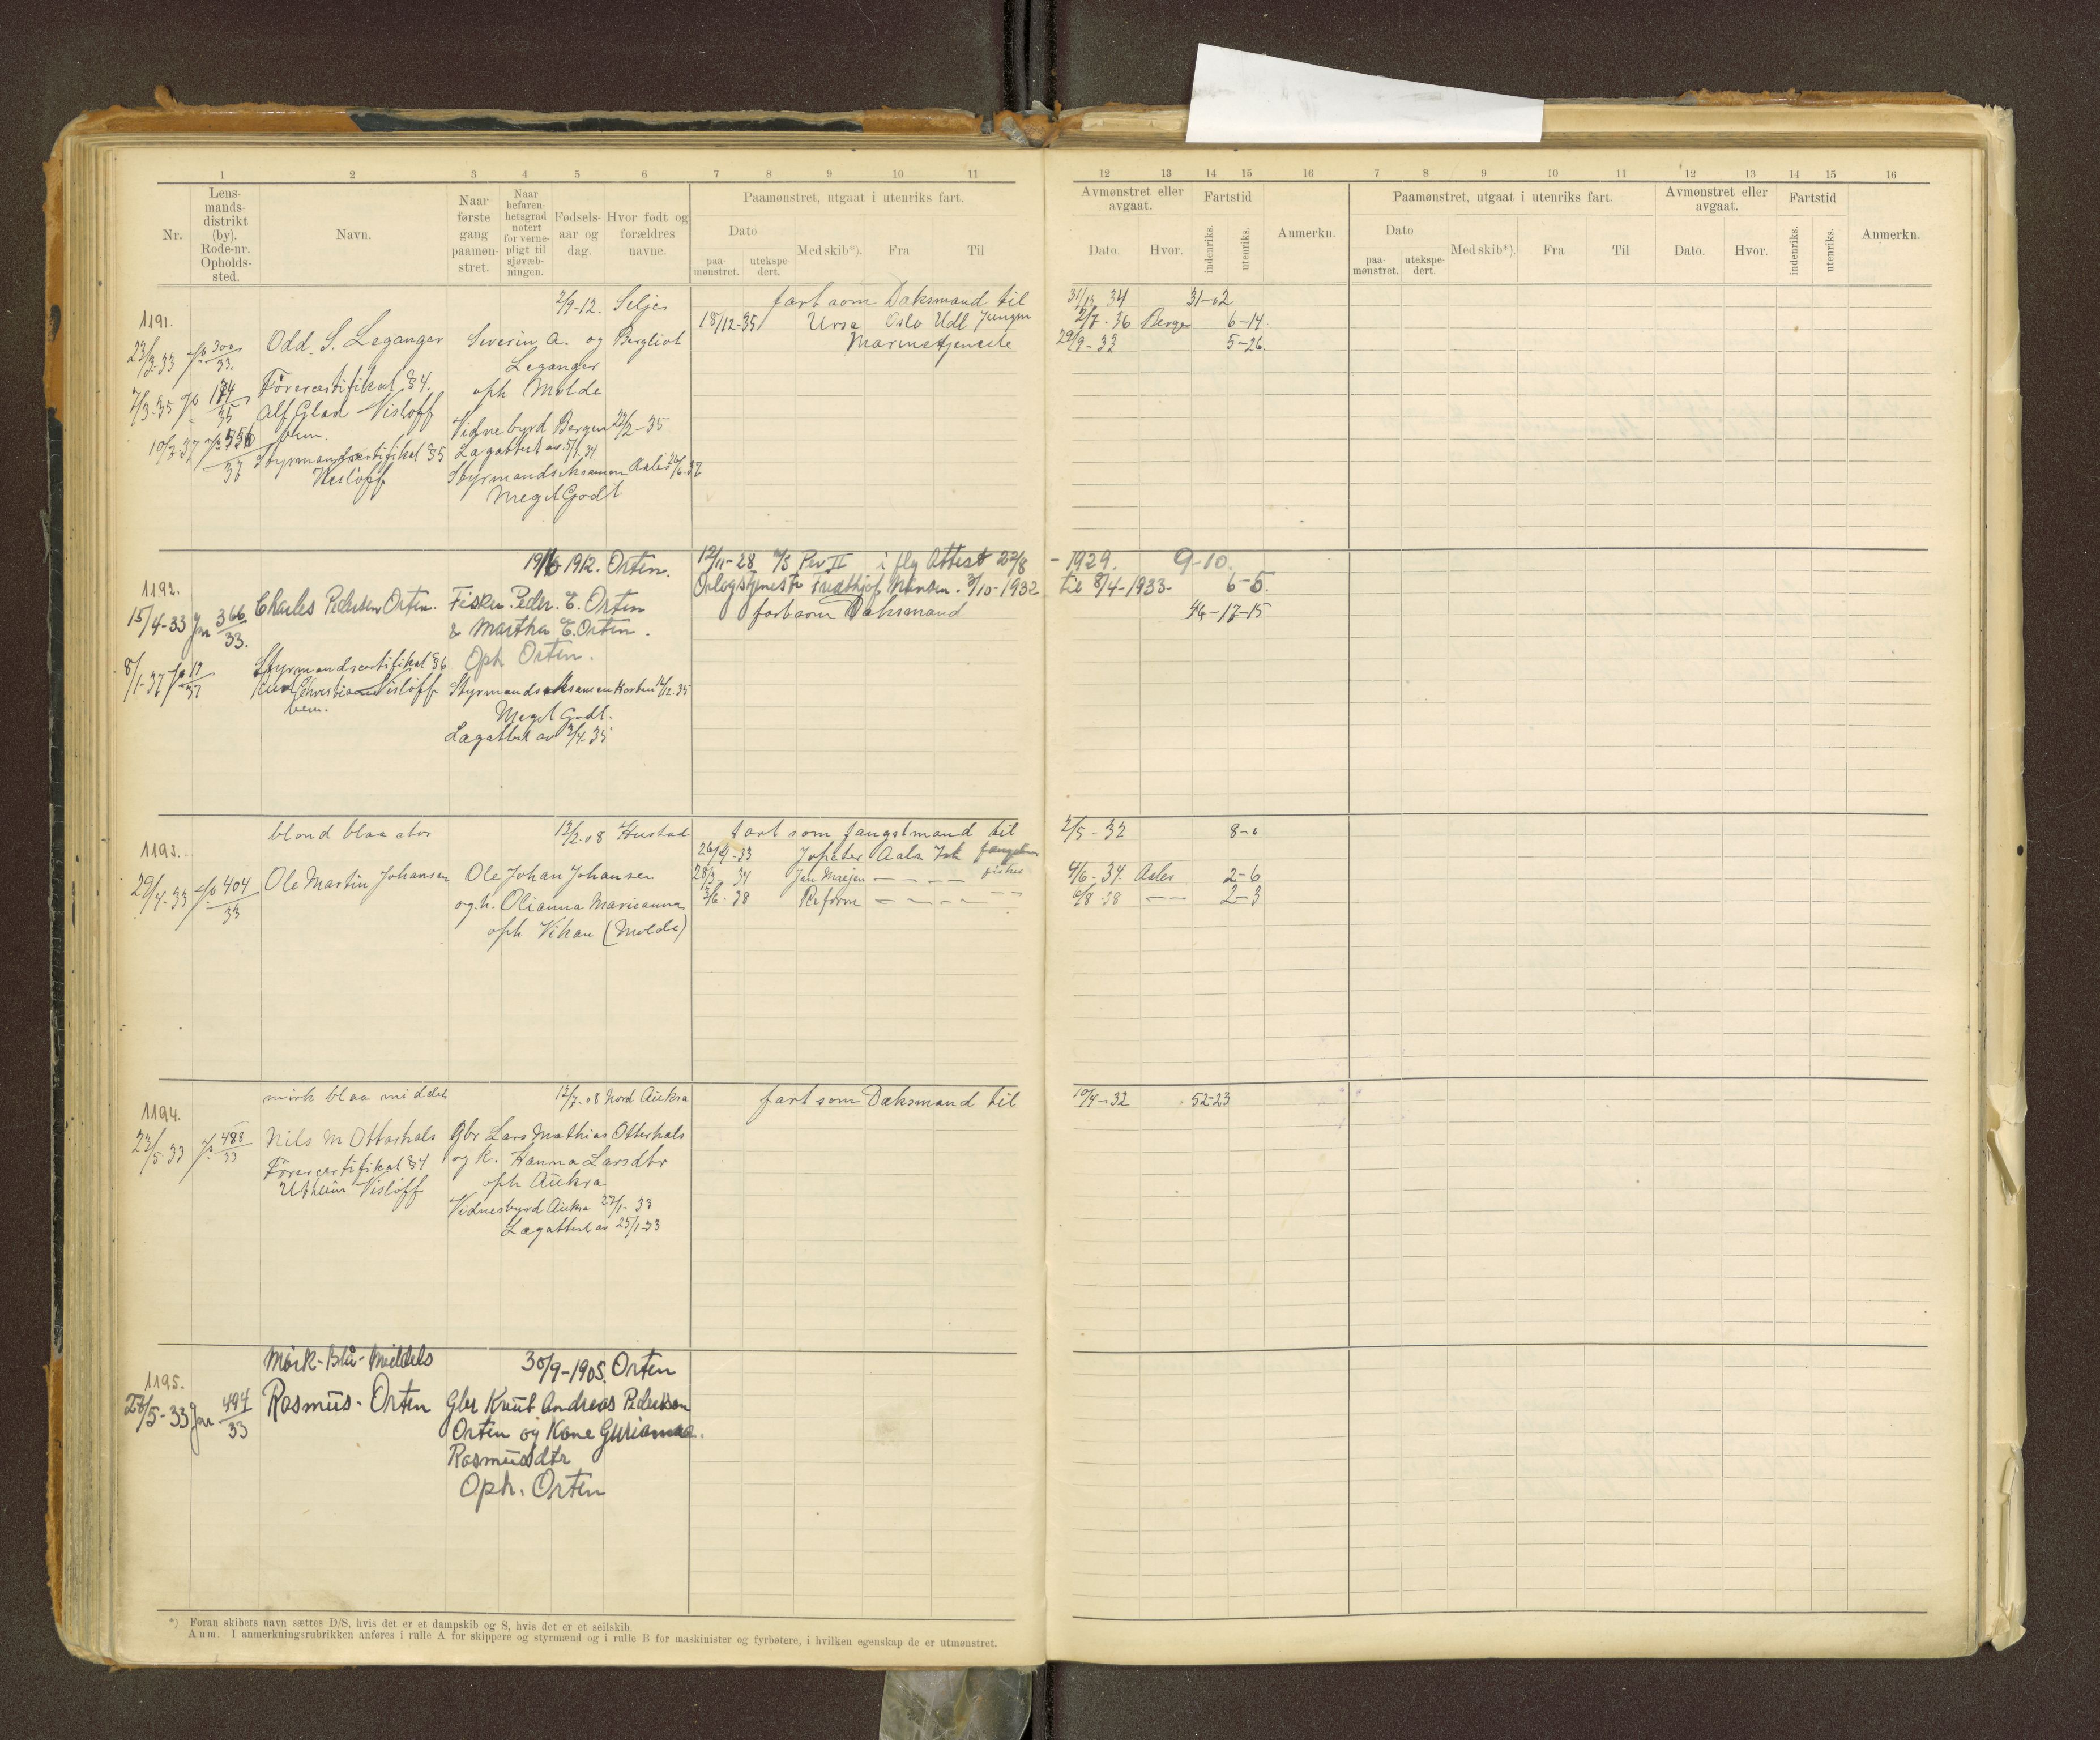 1 2 3 4 5 6 7 8 9 10 11
Nr.
Lens-
mands-
distrikt
(by).
Rode-nr.
Opholds-
sted.
Navn.
Naar
første
gang
paamøn-
stret.
Naar
befaren-
hetsgrad
notert
for verne-
pligt til
sjøvæb-
ningen.
Fødsels-
aar og
dag.
Hvor født og
forældres
navne.
Paamønstret, utgaat i utenriks fart.
Dato
paa-
mønstret.
utekspe-
dert.
Med skib*).
Fra
Til
12 13 14 15 16 7 8 9 10 11 12 13 14 15 16
Avmønstret eller
avgaat.
Dato.
Hvor.
Fartstid
indenriks.
utenriks.
Anmerkn.
Paamønstret, utgaat i utenriks fart.
Dato
paa-
mønstret.
utekspe-
dert.
Med skib*).
Fra
Til
Avmønstret eller
avgaat.
Dato.
Hvor.
Fartstid
indenriks.
utenriks.
Anmerkn.
1191.
2/9-12. Selje
fart som Dæksmand til
34 31-02
18/12-35 Ursa Oslo Udl Jungm
2/7-36 Bergen 6-14.
Odd. S. Leganger Severin A. og Bergliot
Marinetjeneste
29/9-33 5-26.
23/3-33 300/33.
Leganger
7/3-35 Førercertifikat §4. oph Molde
Alf Glad Visløff
Vidnebyrd Bergen 22/2-35
10/7-37 556/37
Styrmandscertifikat §5 Lægattest av 5/1-34
Visløff Styrmandseksamen Aales 26/6-37
Meget Godt
1192.
1912. Orten.
12/11-28 Per II i flg Attest 22/8 - 1929. 9-10.
Orlogstjeneste Fridthjof Nansen. 3/10-1932 til 8/4-1933- 6-5.
15/4-33 Jnr 366/33. Charles Pedersen Orten. Fisker Peder. E. Orten
fart som Dæksmand 46-17-15
& Martha E. Orten.
Oph Orten.
8/1-37 12/37 Styrmandscertifikat §6
Christian Visløff Styrmandseksamen Horten 12/12.35
Meget Godt.
Lægattest av 3/4-35
1193.
blond blaa stor 12/2-08 Hustad
fart som fangstmand til 2/5-32 8-0
26/4-33 Jopeter Aales Ish fangstm
29/4-33 404/33 Ole Martin Johansen Ole Johan Johansen
28/3-34 Jan Mayen — — — — fisker 4/6-34. Aales 2-6
og h. Olianna Marieanna
3/6-38 Reform — — — — — — 6/8-38 — — 2-3
oph Vikan (Molde)
1194.
mørk blaa middels 12/7-08 Nord Aukra
fart som Dæksmand til 10/4-32 52-23
23/5-33 488/33 Nils M Otterhals Gbr Lars Mathias Otterhals
og k. Hanna Larsdtr
Førercertifikat §4
Utheim Visløff
oph Aukra
Vidnesbyrd Aukra 27/1-33
Lægattest av 25/1-33
1195.
Mørk-Blå-Middels 30/9-1905. Orten
28/5-33 Jnr 494/33 Rasmus-Orten Gbr Knut Andreas Pedersen
Orten og Kone Gurianna.
Rasmusdtr
Oph. Orten
*) Foran skibets navn sættes D/S, hvis det er et dampskib og S, hvis det er et seilskib.
Anm. I anmerkningsrubrikken anføres i rulle A for skippere og styrmænd og i rulle B for maskinister og fyrbøtere, i hvilken egenskap de er utmønstret.